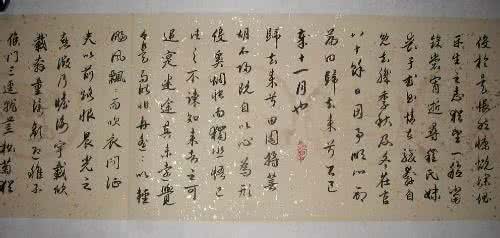 於是悵然慷慨深愧
平生之志猶望一稔當
斂裳宵逝尋程氏妹
喪于武昌情在駿奔自
免去職季秋及冬在官
八十餘日因事順心命
篇曰歸去來兮乙巳
歲十一月也
歸去來兮田園將蕪
胡不歸既自以心為形
役奚惆悵而獨悲悟已
往之不諫知來者之可
追寔迷途其未遠覺
今是而昨非舟遙遙以輕
颺風飄飄而吹衣問征
夫以前路恨晨光之
熹微乃瞻衡宇載欣
載奔僮僕歡迎稚子
候門三逕就荒松菊猶